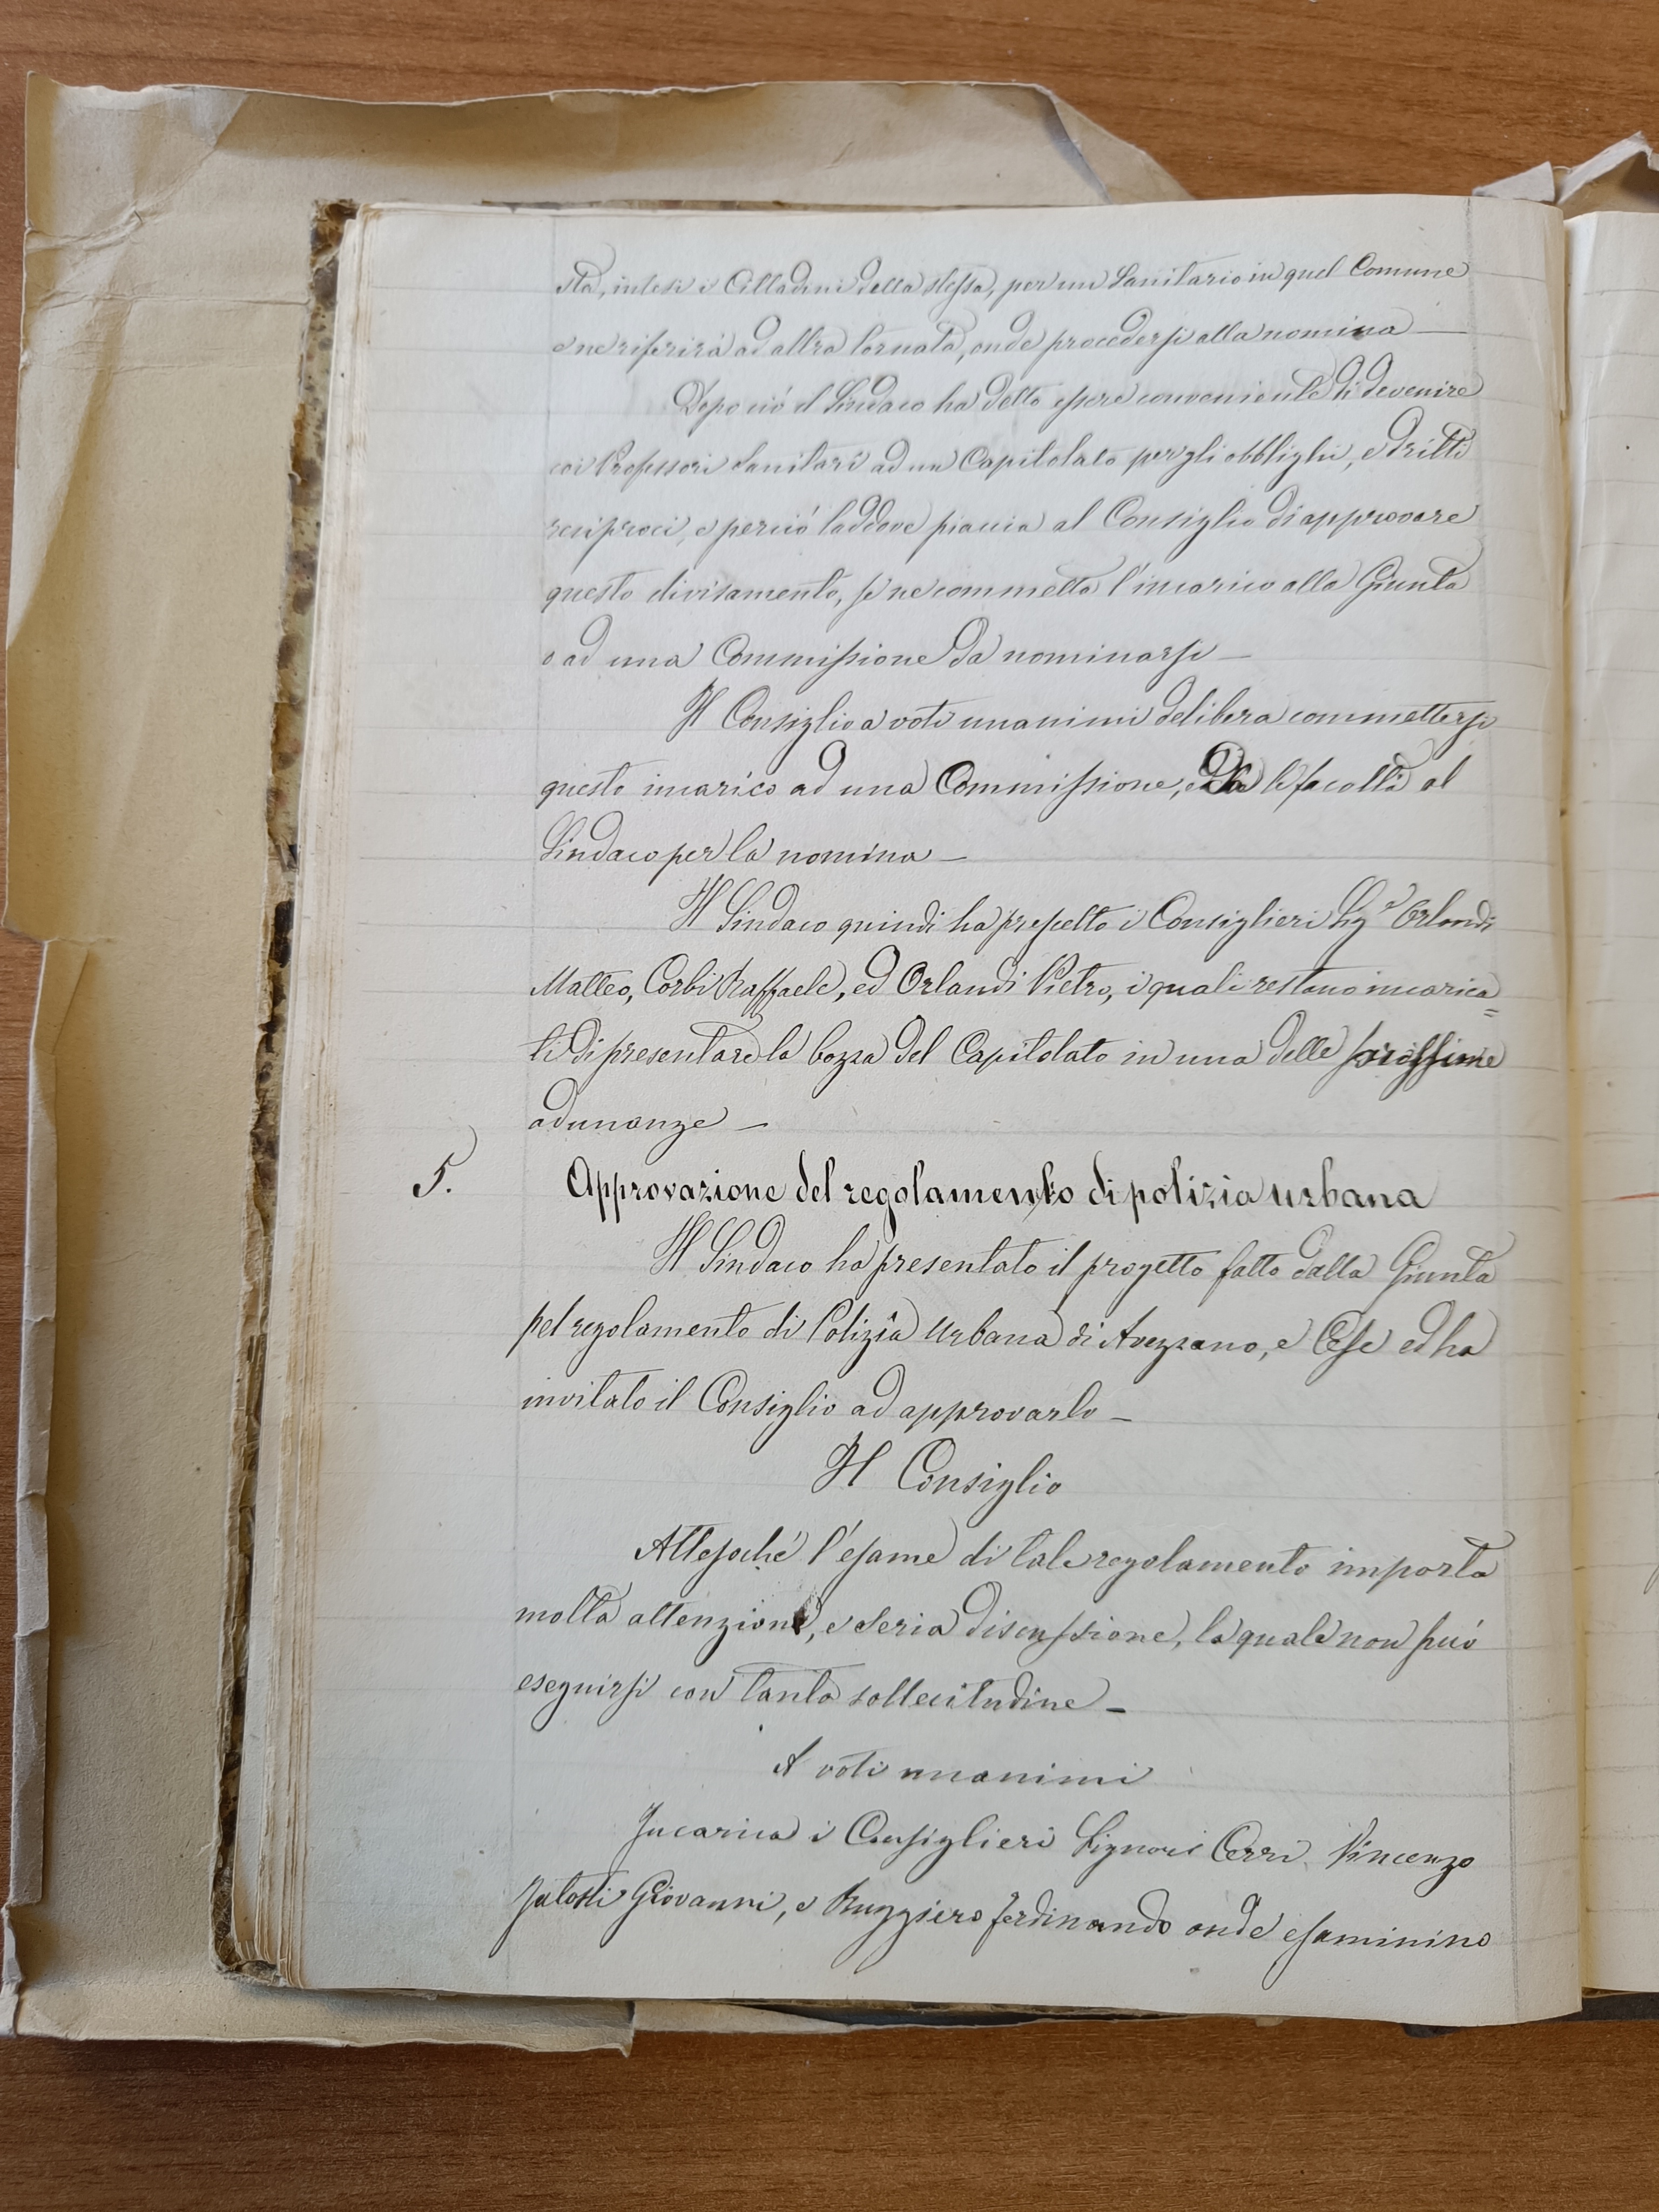 sta, intesi i Cittadini della stessa, per un Sanitario in quel Comune
e ne riferirà ad altra tornata, onde procedersi alla nomina —
Dopo ciò il Sindaco ha detto essere conveniente di devenire
coi Professori Sanitari ad un Capitolato per gli obblighi, e dritti
reciproci, e perciò laddove piaccia al Consiglio di approvare
questo divisamento, se ne commetta l'incarico alla Giunta
o ad una Commissione da nominarsi —
Il Consiglio a voti unanimi delibera commettersi
questo incarico ad una Commissione, e dà le facoltà al
Sindaco per la nomina —
Il Sindaco quindi ha prescelto i Consiglieri Sig.ri Orlandi
Matteo, Corbi Raffaele, ed Orlandi Pietro, i quali restano incarica=
ti di presentare la bozza del Capitolato in una delle prossime
adunanze —
5. Approvazione del regolamento di polizia urbana
Il Sindaco ha presentato il progetto fatto dalla Giunta
pel regolamento di Polizia Urbana di Avezzano, e Cese ed ha
invitato il Consiglio ad approvarlo —
Il Consiglio
Attesoché l'esame di tale regolamento importa
molta attenzione, e seria discussione, la quale non può
eseguirsi con tanta sollecitudine —
A voti unanimi
Incarica i Consiglieri Signori Cerri Vincenzo
Jatosti Giovanni, e Ruggiero Ferdinando onde esaminino